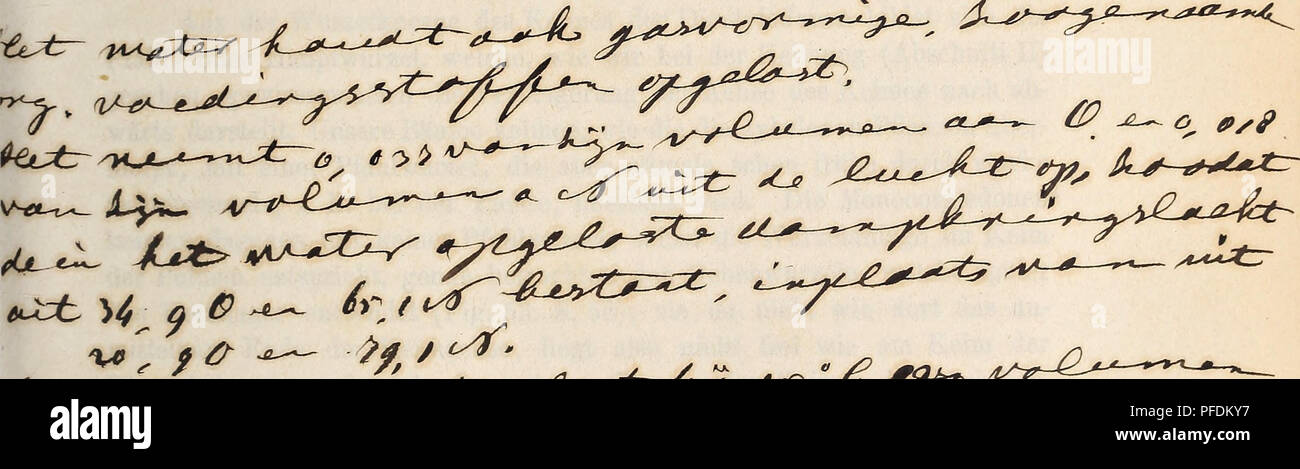 Het water houdt ook gasvormige, zoogenaamde
org. voedingsstoffen opgelost.
Het neemt 0,033 van zijn volumen aan O. en 0,018
van zijn volumen a N uit de lucht op, zoodat
de in het water opgeloste dampkringslucht
uit 34,9 O en 65,1 N bestaat, inplaats van uit
20,9 O en 79,1 N.
volumen
alamy
Image ID: PFDKY7
www.alamy.com